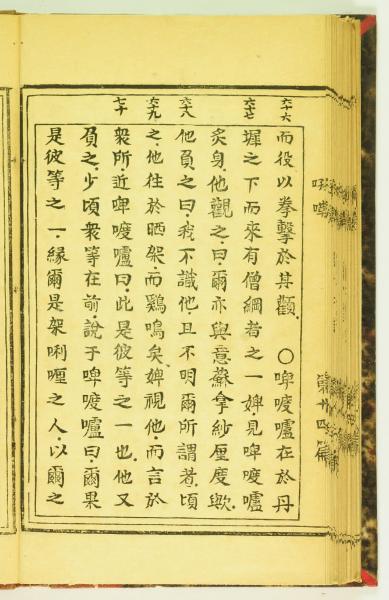 六十六 而役以拳擊於其顴。○啤喥嚧在於丹
六十七 墀之下而來有僧綱者之一婢見啤喥嚧
炙身。他觀之曰。爾亦與意蘇拿紗厘度歟。
六十八 他負之曰。我不識他。且不明爾所謂者。頃
六十九 之。他往於晒架。而鷄鳴矣。婢視他。而言於
七十 衆所近啤喥嚧曰。此是彼等之一也。他又
負之。少頃衆等在前。說于啤喥嚧曰。爾果
是彼等之一。緣爾是架唎哩之人。以爾之
第十四篇